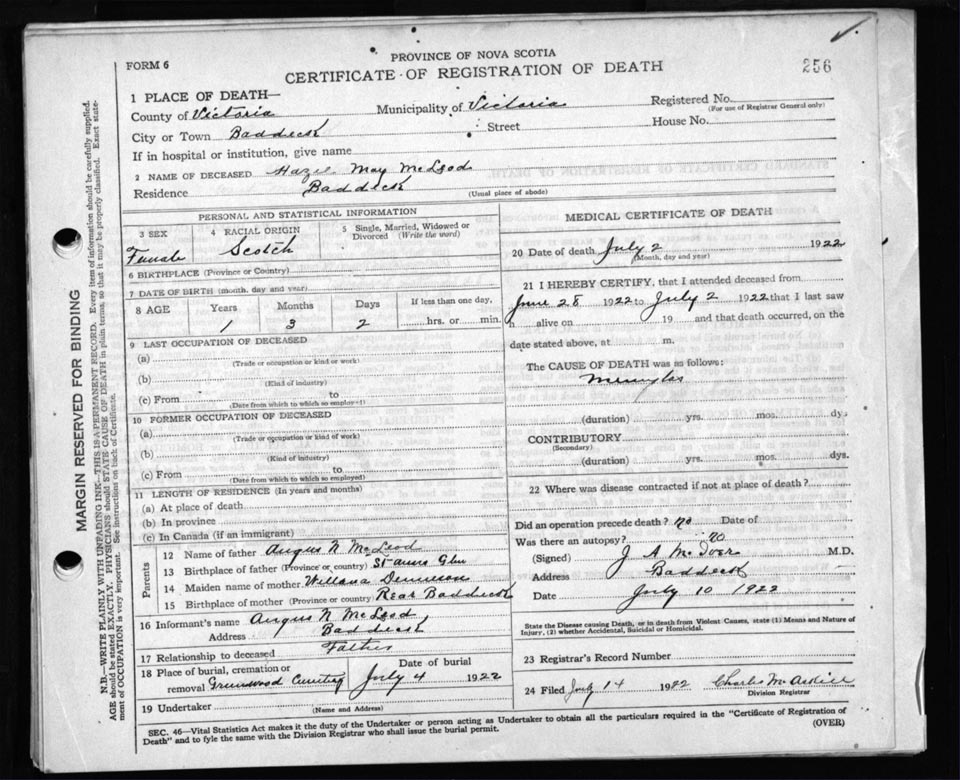 PROVINCE OF NOVA SCOTIA
FORM 6
CERTIFICATE OF REGISTRATION OF DEATH
256
1 PLACE OF DEATH—
County of Victoria Municipality of Victoria Registered No.
(For use of Registrar General only)
City or Town Baddeck Street House No.
If in hospital or institution, give name
2 NAME OF DECEASED Hazel May McLeod
Residence Baddeck
(Usual place of abode)
PERSONAL AND STATISTICAL INFORMATION
3 SEX 4 RACIAL ORIGIN 5 Single, Married, Widowed or Divorced (Write the word)
Female Scotch
6 BIRTHPLACE (Province or Country)
7 DATE OF BIRTH (month, day and year)
8 AGE Years Months Days If less than one day,
1 3 2 hrs. or min.
9 LAST OCCUPATION OF DECEASED
(a)
(Trade or occupation or kind of work)
(b)
(Kind of industry)
(c) From to
(Date from which to which so employed)
10 FORMER OCCUPATION OF DECEASED
(a)
(Trade or occupation or kind of work)
(b)
(Kind of industry)
(c) From to
(Date from which to which employed)
11 LENGTH OF RESIDENCE (In years and months)
(a) At place of death
(b) In province
(c) In Canada (if an immigrant)
Parents
12 Name of father Angus N McLeod
13 Birthplace of father (Province or country) St Anns Glen
14 Maiden name of mother Dennison
15 Birthplace of mother (Province or country) Rear Baddeck
16 Informant's name Angus N McLeod
Address Baddeck
17 Relationship to deceased Father
18 Place of burial, cremation or removal Greenwood Cemetery Date of burial July 4 1922
19 Undertaker
(Name and Address)
MEDICAL CERTIFICATE OF DEATH
20 Date of death July 2 1922
(Month, day and year)
21 I HEREBY CERTIFY, that I attended deceased from
June 28 1922 to July 2 1922 that I last saw
h alive on 19 and that death occurred, on the
date stated above, at m.
The CAUSE OF DEATH was as follows:
(duration) yrs. mos. dys
CONTRIBUTORY
(Secondary)
(duration) yrs. mos. dys.
22 Where was disease contracted if not at place of death?
Did an operation precede death? No Date of
Was there an autopsy? no
(Signed) J A M.D.
Address Baddeck
Date July 10 1922
State the Disease causing Death, or in death from Violent Causes, state (1) Means and Nature of
Injury, (2) whether Accidental, Suicidal or Homicidal.
23 Registrar's Record Number
24 Filed July 14 1922 Charles McAskill
Division Registrar
SEC. 46—Vital Statistics Act makes it the duty of the Undertaker or person acting as Undertaker to obtain all the particulars required in the "Certificate of Registration of
Death" and to fyle the same with the Division Registrar who shall issue the burial permit. (OVER)
MARGIN RESERVED FOR BINDING
N.B.—WRITE PLAINLY WITH UNFADING INK—THIS IS A PERMANENT RECORD. Every item of information should be carefully supplied.
AGE should be stated EXACTLY. PHYSICIANS should STATE CAUSE OF DEATH in plain terms, so that it may be properly classified. Exact state-
ment of OCCUPATION is very important. See instructions on back of Certificate.